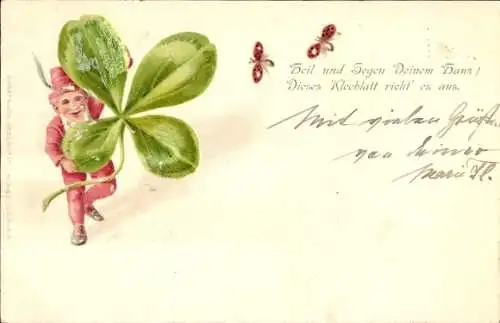 Heil und Segen Deinem Haus!
Dieses Kleeblatt richt' es aus.
Mit vielen Grüßen
von Deiner
Marie Fl.